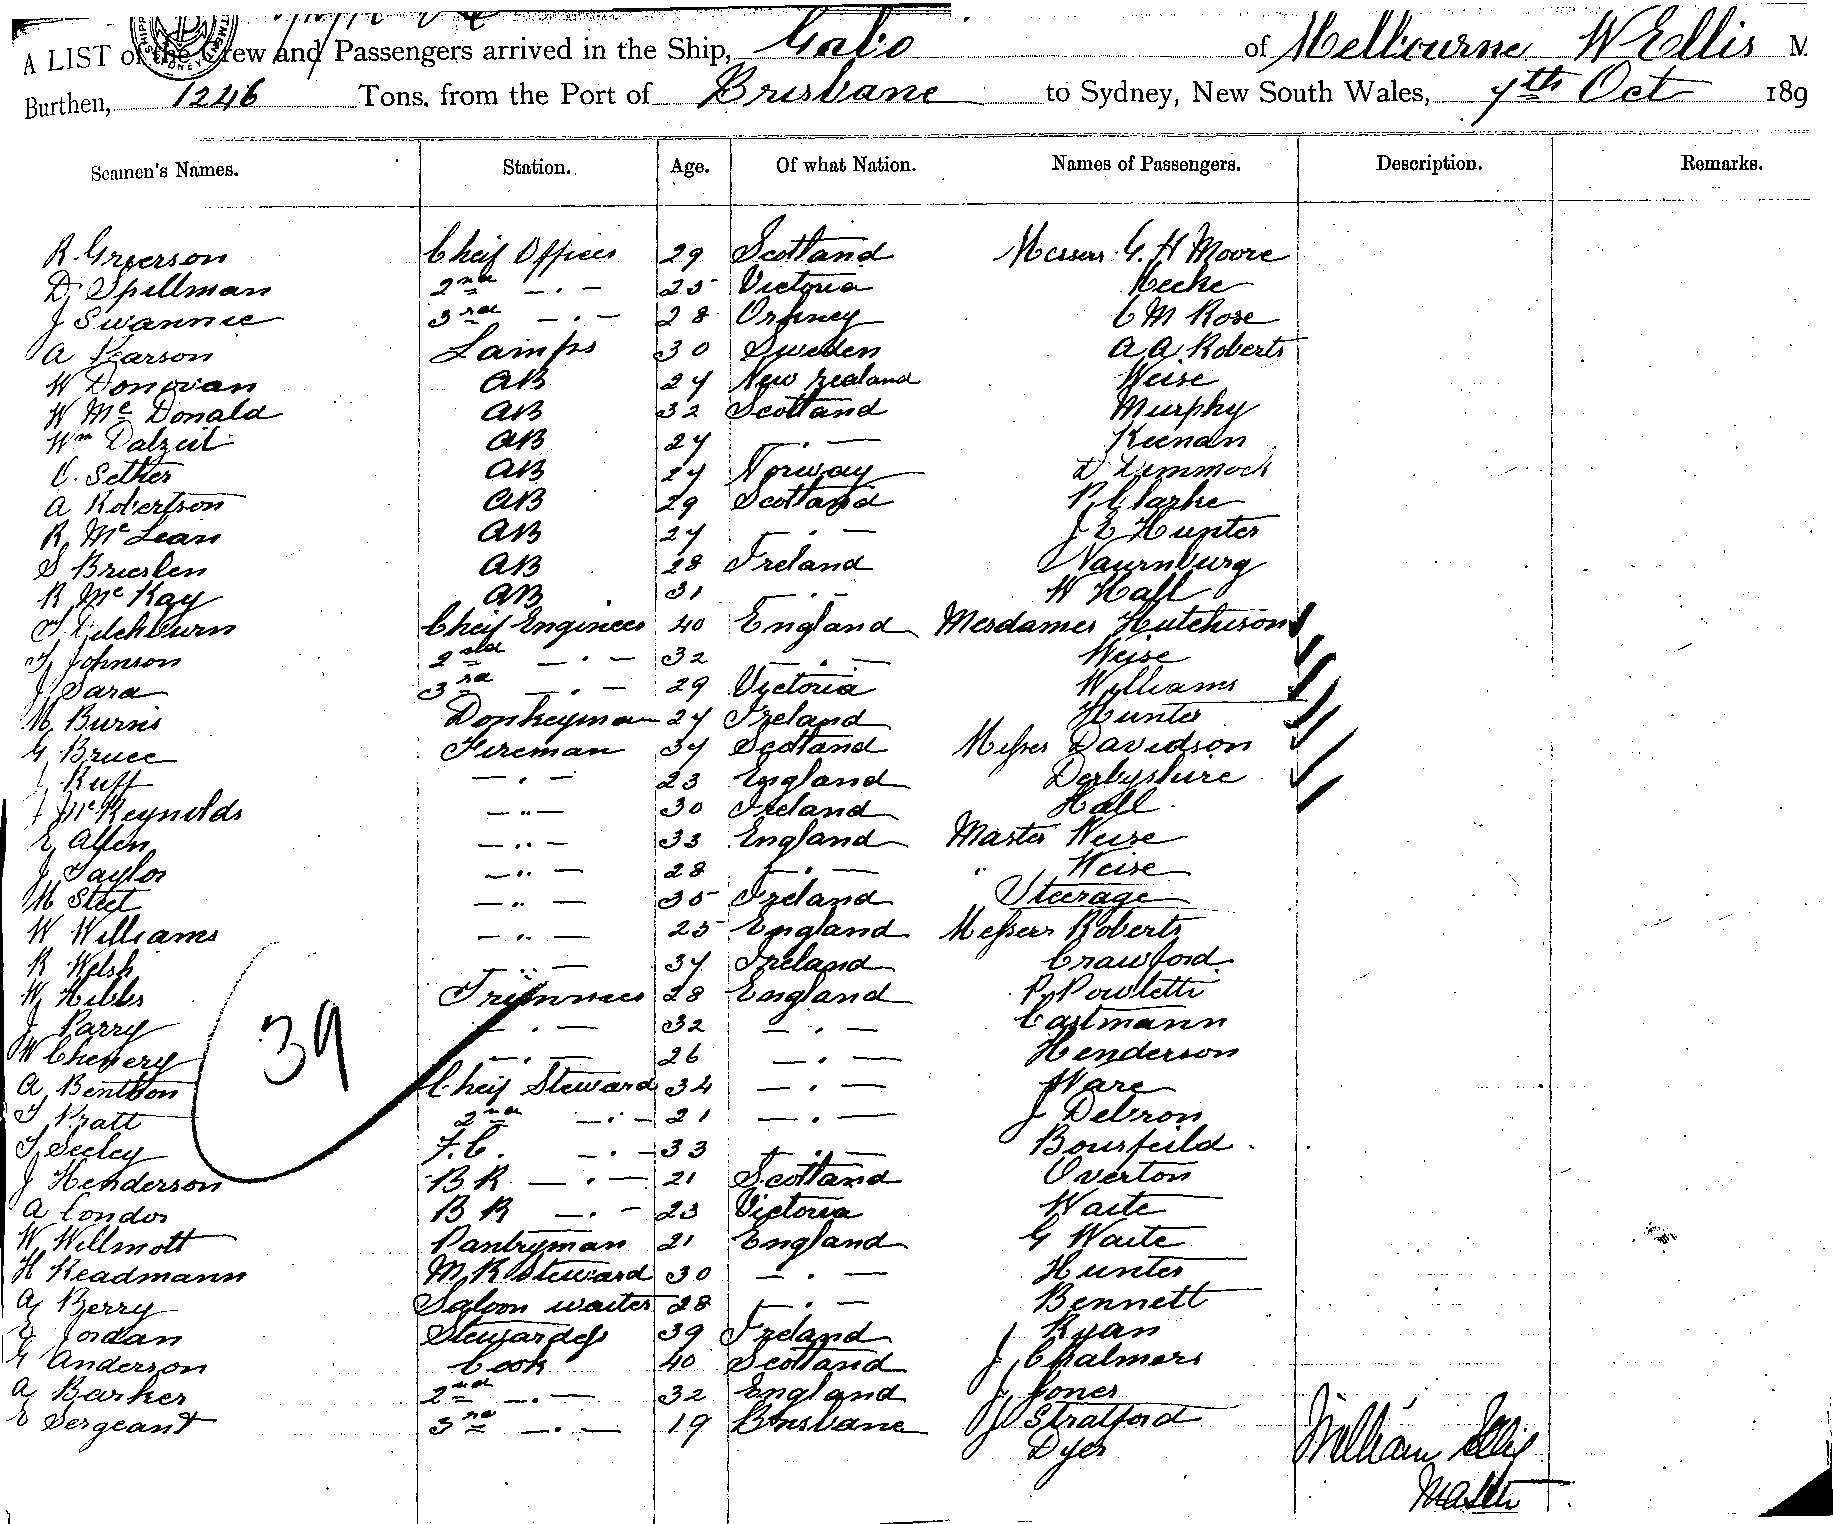 A LIST of the Crew and Passengers arrived in the Ship, Gabo of Melbourne W Ellis
Burthen, 1246 Tons, from the Port of Brisbane to Sydney, New South Wales, 7th Oct 189
Seamen's Names. Station. Age. Of what Nation. Names of Passengers. Description. Remarks.
R. Grierson Cheif Officer 29 Scotland Messrs G. H Moore
D. Spillman 2nd — . — 25 Victoria
J Swannie 3rd — . — 28 Orkney C M Rose
A Pearson Lamps 30 Sweden A A Roberts
W Donovan AB 27 New Zealand Weise
W Mc Donald AB 32 Scotland Murphy
Wm Dalzeil AB 27 — . — Keenan
O. Sether AB 27 Norway D Dimmock
A Robertson AB 29 Scotland P. Clarke
R. McLean AB 27 — . — J E Hunter
S Brieslen AB 28 Ireland Naurnburg
R McKay AB 31 W Hall
T. Ditchburn Cheif Engineer 40 England Mesdames Hutchison
T. Johnson 2nd — . — 32 — . — Weise
J. Sara 3rd — . — 29 Victoria Williams
M Burns Donkeyman 27 Ireland Hunter
G. Bruce Fireman 37 Scotland Messrs Davidson
J. Ruff — . — 23 England Derbyshire
J McReynolds — .. — 30 Ireland Hall
E. Allen — .. — 33 England Master Weise
J. Taylor — .. — 28 — . — " Weise
M Steet — .. — 35 Ireland Steerage
W Williams — .. — 25 England Messrs Roberts
R Welsh — .. — 37 Ireland Crawford
W. Hibbs Trimmer 28 England P. Powletti
J. Parry — . — 32 — . — Castmann
W Chenery — . — 26 — . — Henderson
39
A. Benthon Cheif Steward 34 — . — Ware
T Pratt 2nd — . — 21 — . — J Debron
T. Seeley F.C. — . — 33 — . — Bousfeild
J Henderson B R — . — 21 Scotland Overton
A Condor B R — . — 23 Victoria Waite
W. Willmott Pantryman 21 England G Waite
H Readmann M R Steward 30 — . — Hunter
A. Berry Saloon waiter 28 — . — Bennett
E Jordan Stewardess 39 Ireland Ryan
G Anderson Cook 40 Scotland J. Chalmers
A. Barker 2nd — . — 32 England J. Jones
E Sergeant 3rd — . — 19 Brisbane J Stratford
Dyer
William Ellis
Master